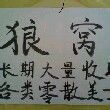 狼窝
长期大量收
各类零散美